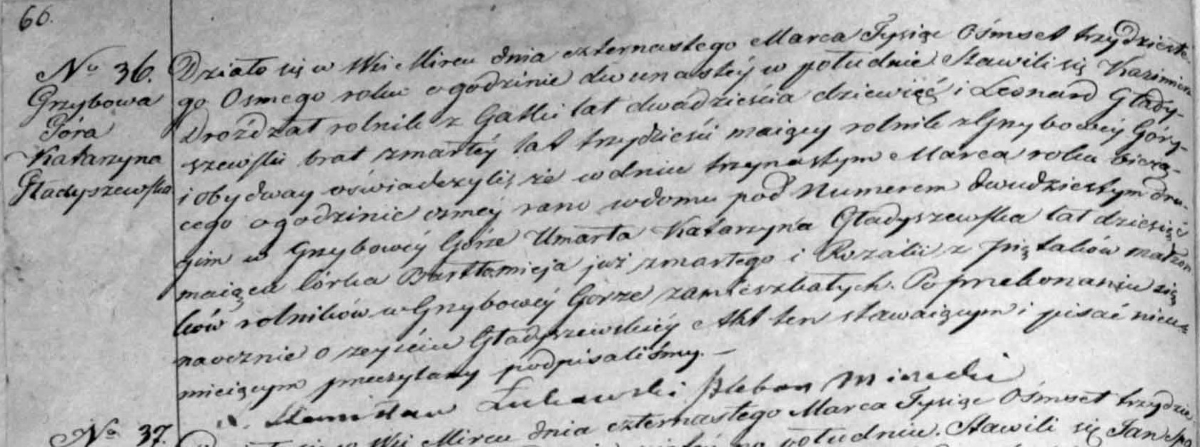 66.
No 36.
Grzybowa
Góra
Katarzyna
Gładyszewska
Działo się w Wsi Mircu dnia czternastego Marca Tysiąc Ośmset trzydzieste-
go Osmego roku o godzinie dwunastéy w południe Stawili się Kazimierz
Drożdżał rolnik z Gadki lat dwadzieścia dziewięć i Leonard Głady-
szewski brat zmarłéy lat trzydzieści maiący rolnik z Grzybowéy Góry
i obydway oświadczyli, że w dniu trzynastym Marca roku bieżą-
cego o godzinie ozméy rano w domu pod Numerem dwudziestym dru-
gim w Grzybowéy Górze Umarła Katarzyna Gładyszewska lat dziesięć
maiąca córka Bartłomieja już zmarłego i Rozalii z Piątaków małżon-
ków rolników w Grzybowéy Górze zamieszkałych. Po przekonaniu się
naocznie o zeyściu Gładyszewskiéy Akt ten stawaiącym i pisać nieu-
mieiącym przeczytany podpisaliśmy.—
X. Stanisław Łukawski Pleban Mirecki
No 37.
Wsi Mircu dnia czternastego Marca Tysiąc Ośmset trzydzie
południu. Stawili się Jan